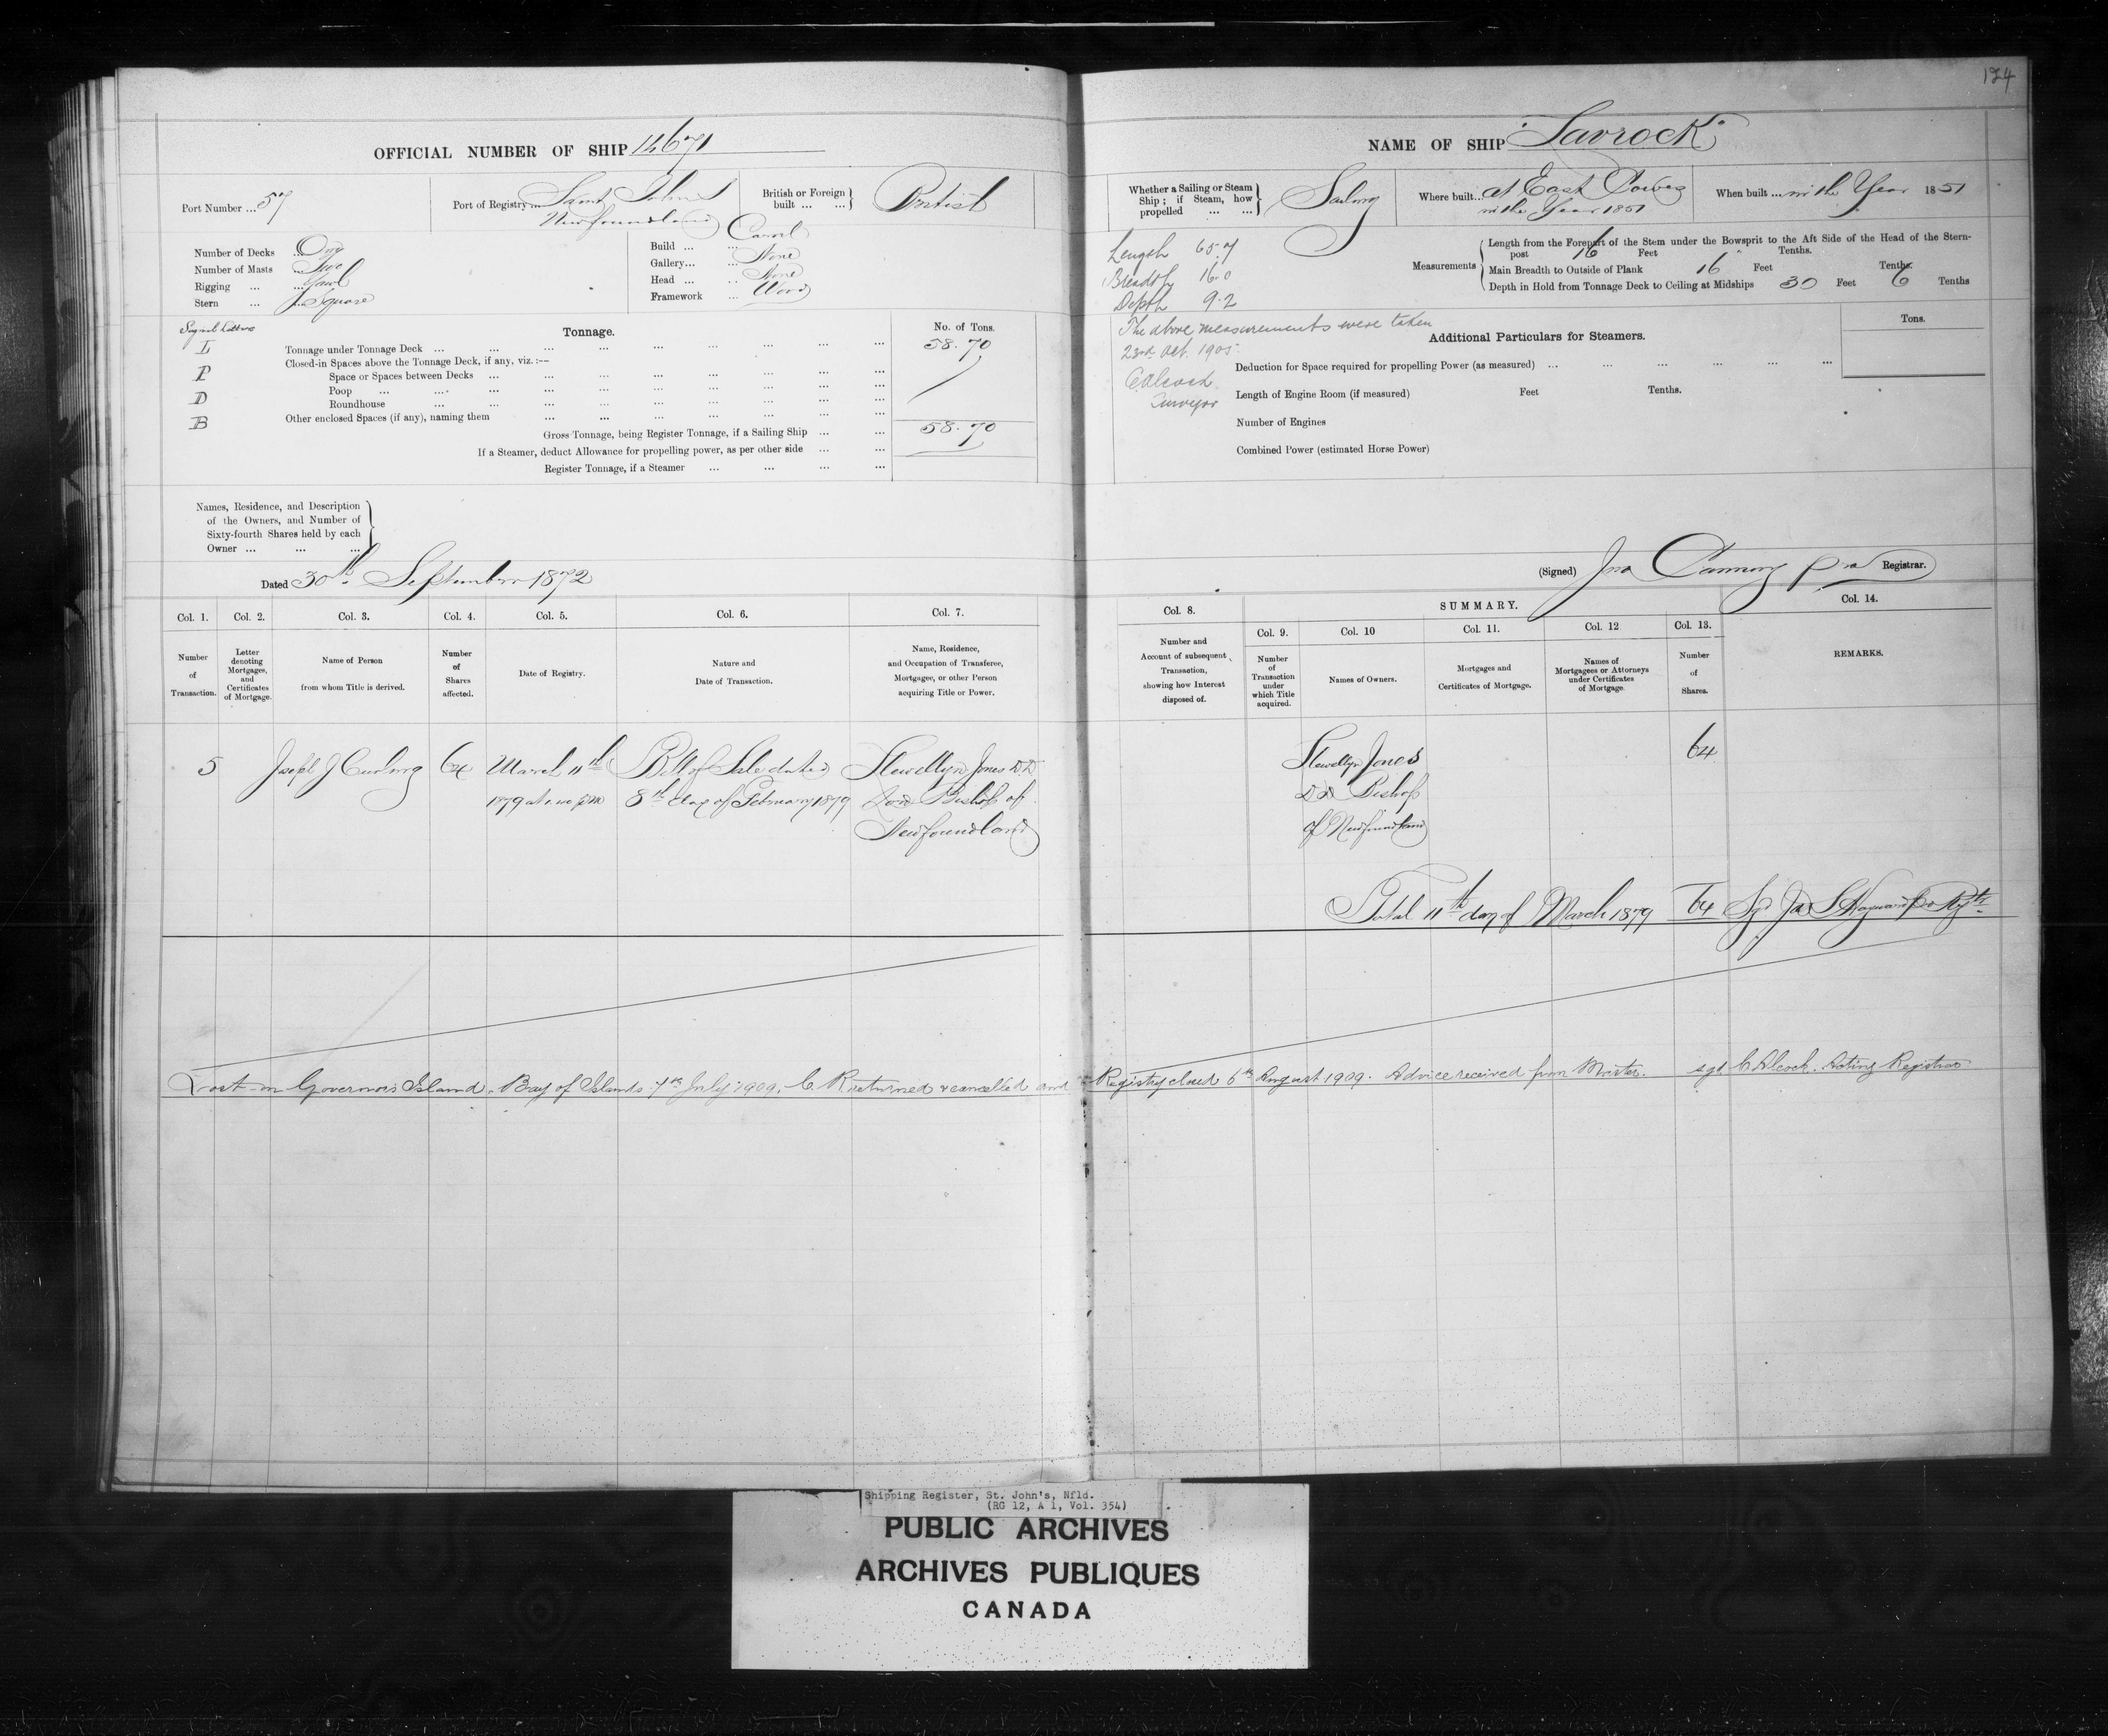 124
OFFICIAL NUMBER OF SHIP 14671
NAME OF SHIP "Lavrock"
Port Number ... 57
Port of Registry ... Saint John's
Newfoundland
British or Foreign built ... ... } British
Whether a Sailing or Steam Ship; if Steam, how propelled ... ... } Sailing
Where built... at East Cowes
in the Year 1851
When built ... in the Year 1851
Number of Decks ... One
Number of Masts ... Two
Rigging ... ... Yawl
Stern ... ... Square
Build ... ... Carvel
Gallery... ... None
Head ... ... None
Framework ... Wood
Length 65.7
Breadth 16.0
Depth 9.2
The above measurements were taken
23rd Oct. 1905
C Alcock
Surveyor
Measurements { Length from the Forepart of the Stem under the Bowsprit to the Aft Side of the Head of the Stern-
post 16 Feet Tenths.
Main Breadth to Outside of Plank 16 Feet Tenths.
Depth in Hold from Tonnage Deck to Ceiling at Midships 30 Feet 6 Tenths
Signal Letters
L
P
D
B
Tonnage.
No. of Tons.
Tonnage under Tonnage Deck ... ... ... ... ... ... ... ... 58.70
Closed-in Spaces above the Tonnage Deck, if any, viz. :--
Space or Spaces between Decks ... ... ... ... ... ... ...
Poop ... ... ... ... ... ... ... ...
Roundhouse ... ... ... ... ... ... ...
Other enclosed Spaces (if any), naming them ... ... ... ... ... ...
Gross Tonnage, being Register Tonnage, if a Sailing Ship ... ... 58.70
If a Steamer, deduct Allowance for propelling power, as per other side ... ...
Register Tonnage, if a Steamer ... ... ... ...
Additional Particulars for Steamers.
Tons.
Deduction for Space required for propelling Power (as measured) ... ... ... ... ... ...
Length of Engine Room (if measured) Feet Tenths.
Number of Engines
Combined Power (estimated Horse Power)
Names, Residence, and Description
of the Owners, and Number of
Sixty-fourth Shares held by each
Owner ... ... ...
Dated 30th September 1872
(Signed) Jno Canning Registrar.
Col. 1. Col. 2. Col. 3. Col. 4. Col. 5. Col. 6. Col. 7.
Number of Transaction.
Letter denoting Mortgages, and Certificates of Mortgage.
Name of Person from whom Title is derived.
Number of Shares affected.
Date of Registry.
Nature and Date of Transaction.
Name, Residence, and Occupation of Transferee, Mortgagee, or other Person acquiring Title or Power.
Col. 8.
SUMMARY.
Col. 14.
Col. 9. Col. 10 Col. 11. Col. 12 Col. 13.
Number and Account of subsequent Transaction, showing how Interest disposed of.
Number of Transaction under which Title acquired.
Names of Owners.
Mortgages and Certificates of Mortgage.
Names of Mortgagees or Attorneys under Certificates of Mortgage
Number of Shares.
REMARKS.
5 Joseph J Curling 64 March 11th Bill of Sale dated Llewellyn Jones D.D
1879 at pm 8th day of February 1879 Lord Bishop of
Newfoundland
Llewellyn Jones 64
DD Bishop
of Newfoundland
Total 11th day of March 1879 64 Sgd Jas S Hayward
Lost on Governor's Island, Bay of Islands 7th July 1909. C. R. returned & cancelled and Registry closed 6th August 1909. Advice received from Master. sgd C Alcock. Acting Registrar
Shipping Register, St. John's, Nfld.
(RG 12, A 1, Vol. 354)
PUBLIC ARCHIVES
ARCHIVES PUBLIQUES
CANADA